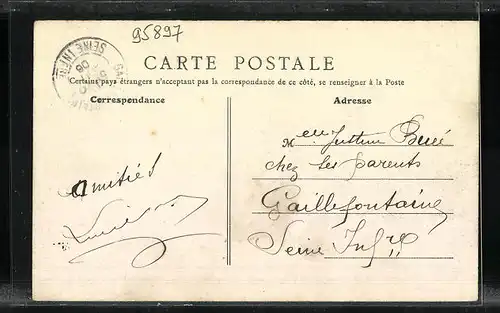 95897
CARTE POSTALE
Certains pays étrangers n'acceptant pas la correspondance de ce côté, se renseigner à la Poste
Correspondance
Adresse
SEINE INFRE
06
Melle
chez ses parents
Gaillefontaine
Seine Infre
Amitiés